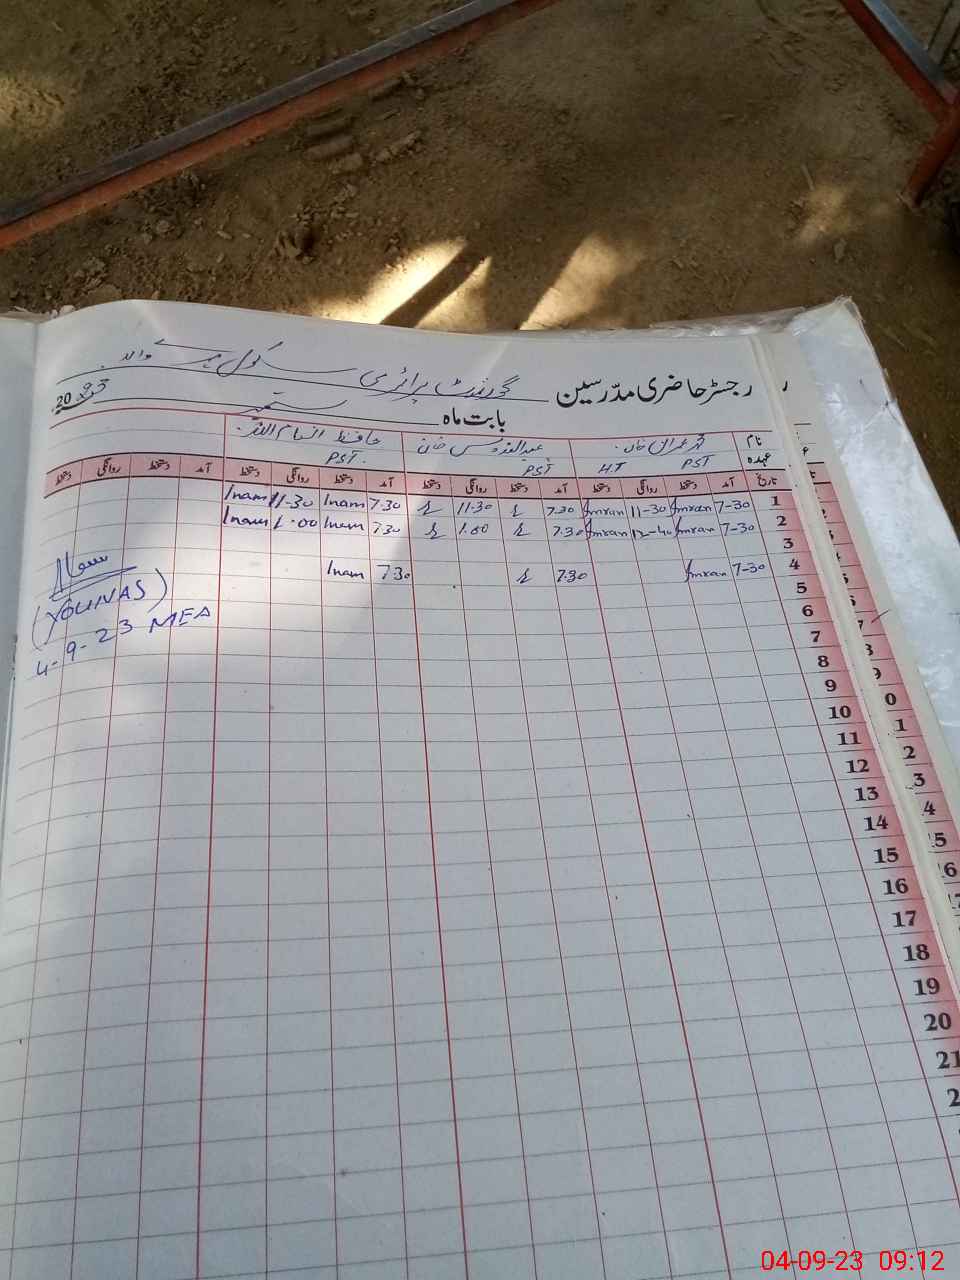 رجسٹر حاضری مدرسین گورنمنٹ پرائمری سکول والہ
بابت ماہ ستمبر 2023
نام محمد عمران خان عبدالقدوس خان حافظ انعام اللہ
عہدہ PST H.T PST PST.
تاریخ آمد دستخط روانگی دستخط آمد دستخط روانگی دستخط آمد دستخط روانگی دستخط آمد دستخط روانگی دستخط
1 7-30 Imran 11-30 Imran 7.30 11.30 7.30 Inam 11-30 Inam
2 7-30 Imran 12-40 Imran 7.30 1.00 7.30 Inam 1.00 Inam
3
4 7-30 Imran 7.30 7.30 Inam
5
6
7
8
9
10
11
12
13
14
15
16
17
18
19
20
21
(YOUNAS)
4-9-23 MEA
04-09-23 09:12